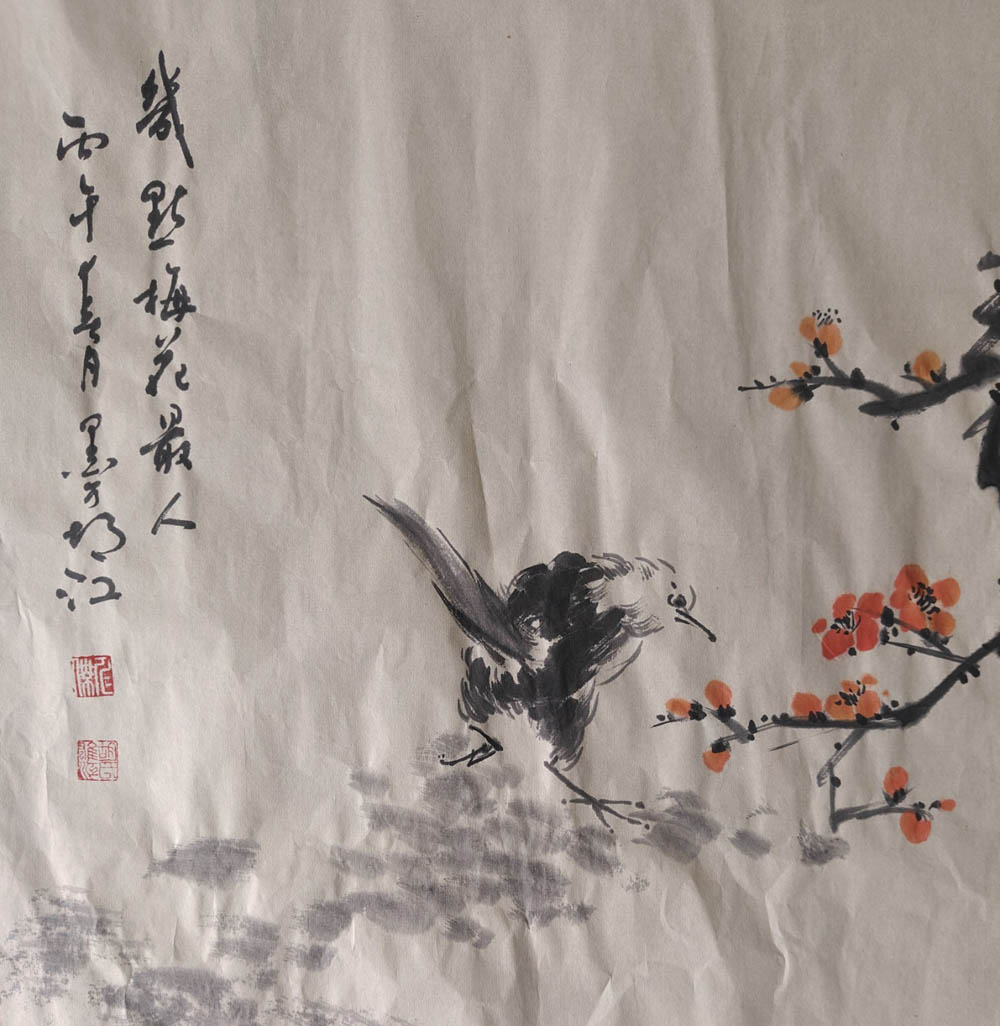 幾點梅花最人
丙午春月墨
江